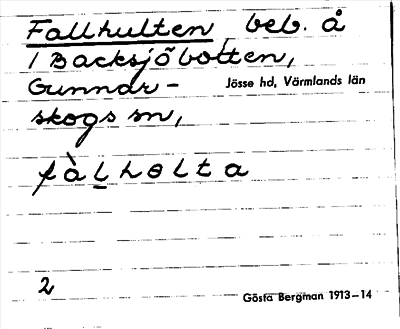 Fallhulten, beb. å
1 Backsjöbotten,
Gunnar-
Jösse hd, Värmlands län
skogs sn,
fàlholta
2
Gösta Bergman 1913-14